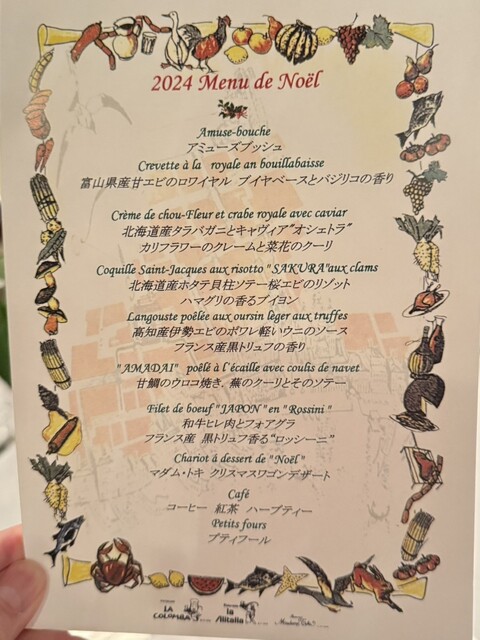 2024 Menu de Noël
Amuse-bouche
アミューズブッシュ
Crevette à la royale an bouillabaisse
富山県産甘エビのロワイヤル ブイヤベースとバジリコの香り
Crème de chou-Fleur et crabe royale avec caviar
北海道産タラバガニとキャヴィア"オシェトラ"
カリフラワーのクレームと菜花のクーリ
Coquille Saint-Jacques aux risotto "SAKURA"aux clams
北海道産ホタテ貝柱ソテー桜エビのリゾット
ハマグリの香るブイヨン
Langouste poëlée aux oursin lèger aux truffes
高知産伊勢エビのポワレ軽いウニのソース
フランス産黒トリュフの香り
"AMADAI" poëlé à l'écaille avec coulis de navet
甘鯛のウロコ焼き, 蕪のクーリとそのソテー
Filet de boeuf "JAPON" en "Rossini"
和牛ヒレ肉とフォアグラ
フランス産 黒トリュフ香る"ロッシーニ"
Chariot á dessert de "Noël"
マダム・トキ クリスマスワゴンデザート
Café
コーヒー 紅茶 ハーブティー
Petits fours
プティフール
LA COLOMBA
la Allitalia